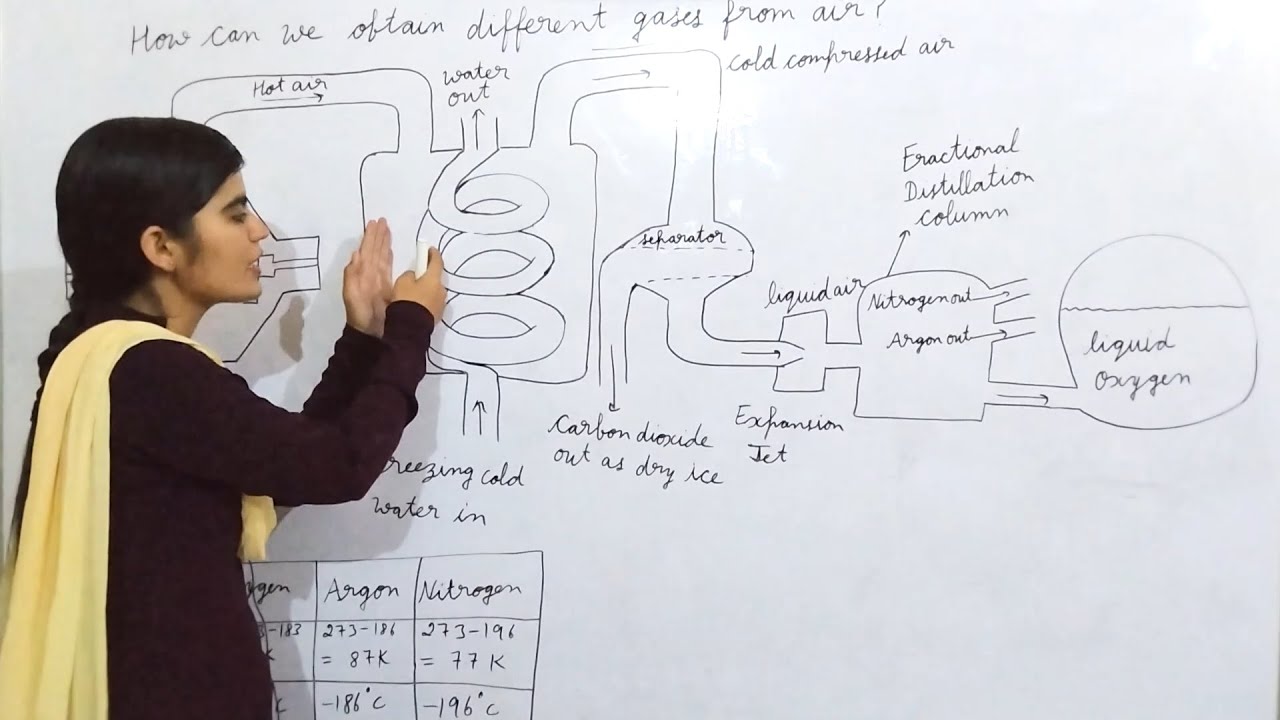 How can we obtain different gases from air?
Hot air
water
out
cold compressed air
Fractional
Distillation
column
separator
liquid air
Nitrogen out
Argon out
liquid
Oxygen
Carbon dioxide
out as dry ice
Expansion
Jet
reezing cold
water in
gen Argon Nitrogen
-183 273-186 273-196
K = 87K = 77 K
C -186°C -196°C